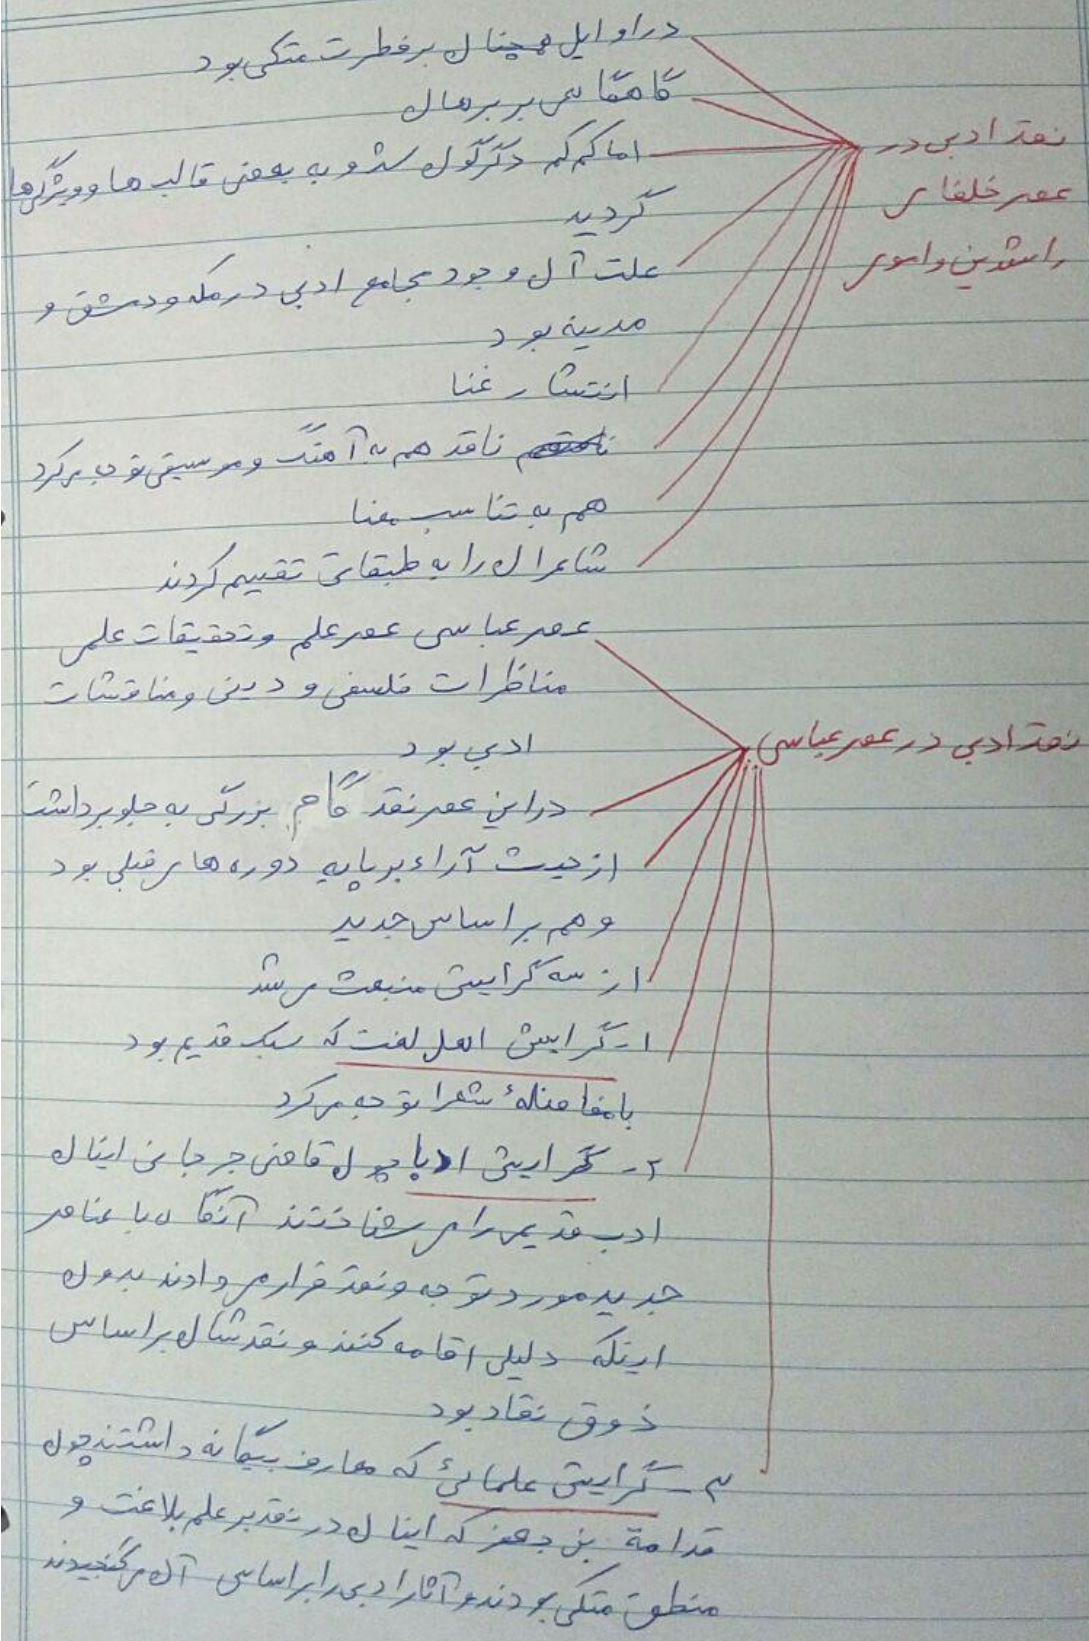 نقد ادبی در
عصر خلفای
راشدین و اموی
در اوایل همچنان بر فطرت متکی بود
گاهگاهی بر برهان
اما کم کم دگرگون شد و به بعضی قالب ها و ویژگی ها
گردید
علت آن وجود مجامع ادبی در مکه و دمشق و
مدینه بود
انتشار غنا
ناقد هم به آهنگ و موسیقی توجه میکرد
هم به تناسب معنا
شاعران را به طبقاتی تقسیم کردند
نقد ادبی در عصر عباسی
عصر عباسی عصر علم و تحقیقات علمی
مناظرات فلسفی و دینی و مناقشات
ادبی بود
در این عصر نقد گام بزرگی به جلو برداشت
از حیث آراء بر پایه دوره های قبلی بود
و هم بر اساس جدید
از سه گرایش منبعث می شد
۱- گرایش اهل لغت که سبک قدیم بود
با مفاضلهٔ شعرا توجه میکرد
۲- گرایش ادبا چون قاضی جرجانی اینان
ادب قدیم را می شناختند آنگاه با عناصر
جدید مورد توجه و نقد قرار می دادند بدون
اینکه دلیلی اقامه کنند و نقدشان بر اساس
ذوق نقاد بود
۳- گرایش علمائی که معارف بیگانه داشتند چون
قدامة بن جعفر که اینان در نقد بر علم بلاغت و
منطق متکی بودند و آثار ادبی را بر اساس آن می سنجیدند